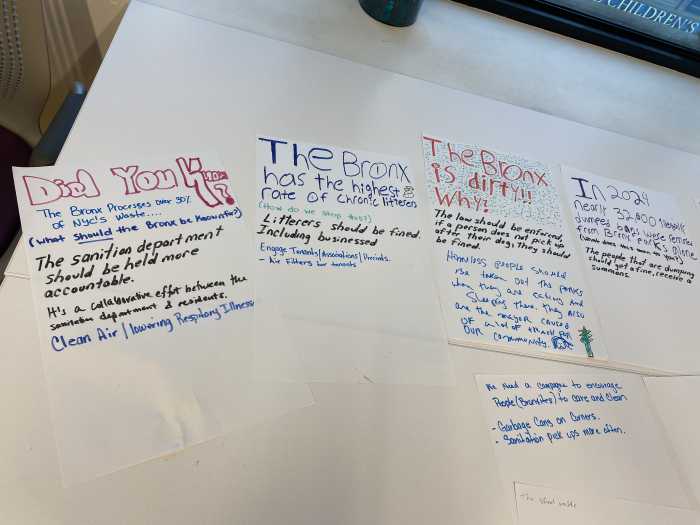 CHILDREN'S
Did You Know?
The Bronx Processes over 30%
of Nyc's Waste....
(What should the Bronx be Known for?)
The sanition department
should be held more
accountable.
It's a collaborative effort between the
sanitation department & residents.
Clean Air / lowering Respitory Illness
The Bronx
has the highest
rate of chronic litterers
(How do we stop this?)
Litterers should be fined
Including businessed
Engage Tenants/Associations/
- Air Filters for tenants
The Bronx
is dirty!!
Why?
The law should be enforced
if a person does not pick up
after their dog, they should
be fined.
Homless people should
be taken out the parks
when they are eating and
Sleeping there. They also
are the mayor cause
of a lot of trash for
our community.
In 2024
nearly 32,000 illegally
dumped bags were remov
from Bronx parks alone.
The people that are dumping
should get a fine, receive a
summons.
We need a campagne to encourage
People (Bronxites) to care and clean
- Garbage Cans on Corners.
- Sanitation pick ups more often.
The